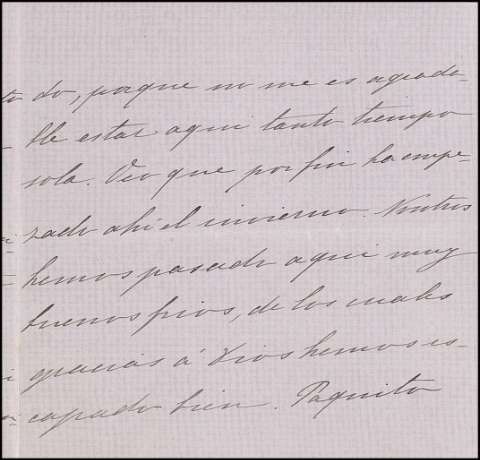 to do, porque no me es agrada-
ble estar aqui tanto tiempo
sola. Veo que por fin ha empe-
zado ahí el invierno. Nosotros
hemos pasado aqui muy
buenos frios, de los cuales
gracias á Dios hemos es-
capado bien. Paquito